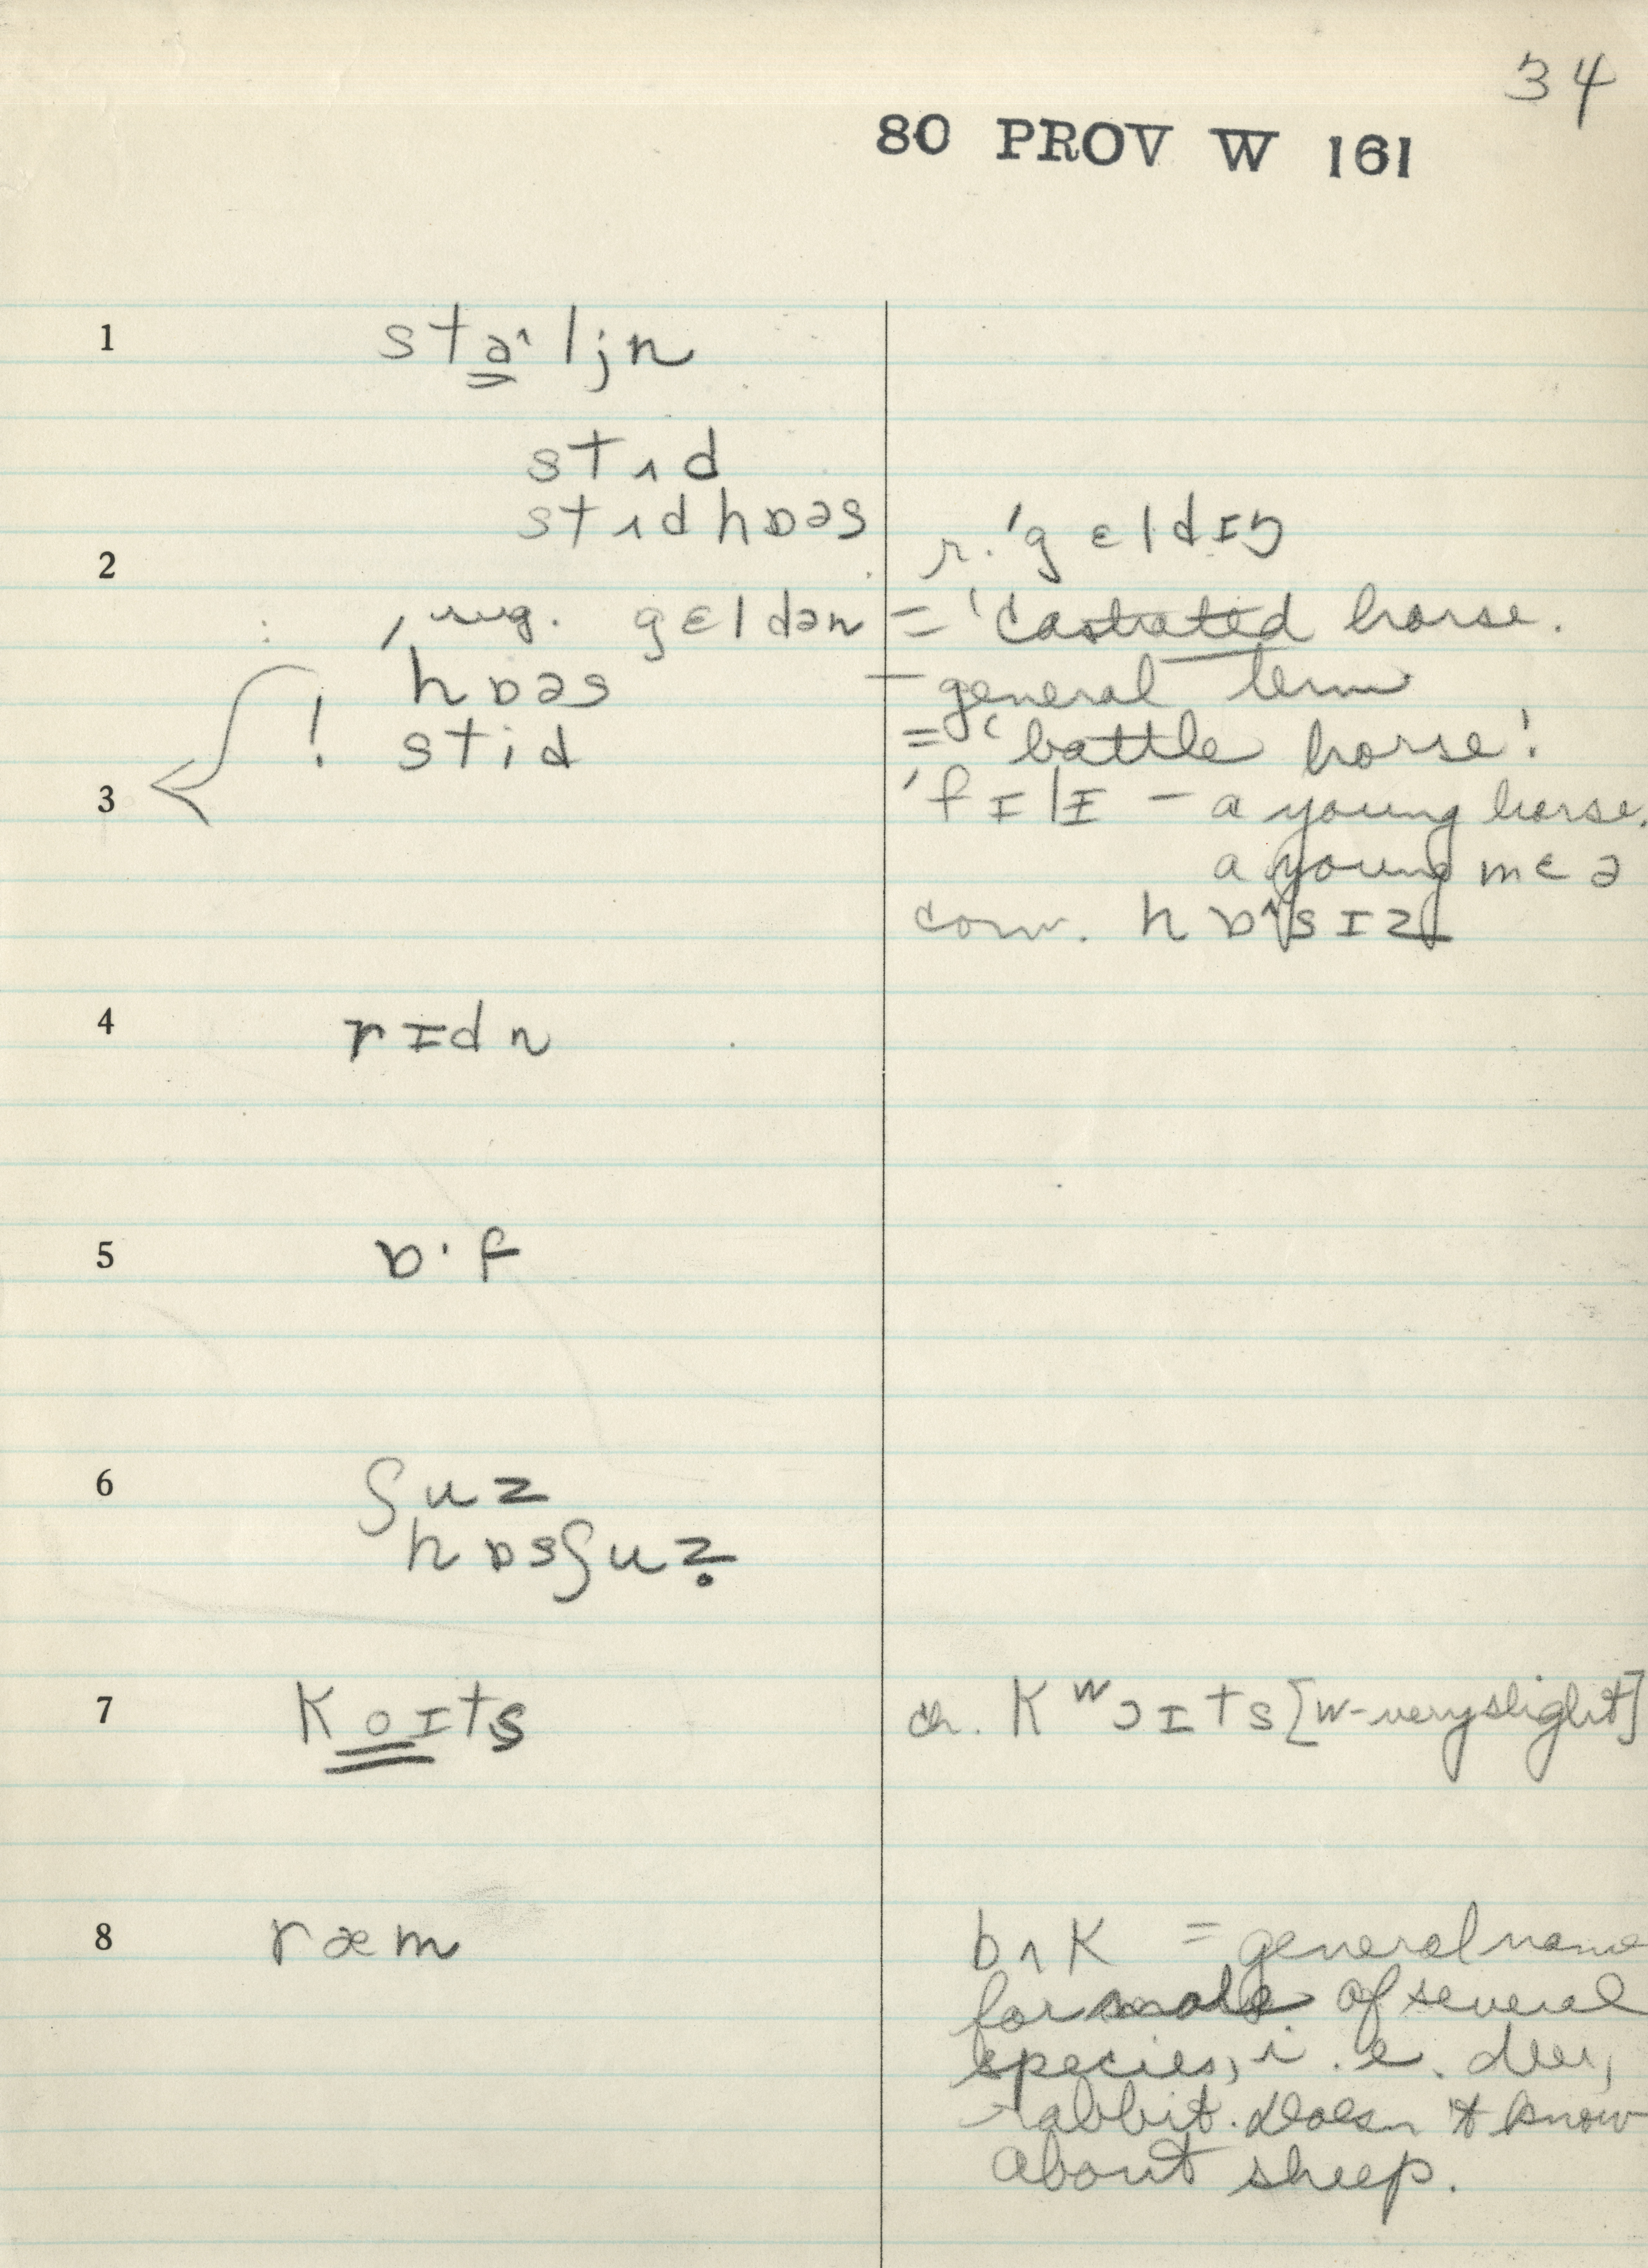 34
80 PROV W 161
1 sta^ljn
stʌd
stʌdhɒəs
r. 'gɛldɪŋ
2
, sug. gɛldən = 'castrated horse.
hɒəs – general term
! stid = 'battle horse'.
3 'fɪlɪ – a young horse.
a young mɛə
conv. hɒ^sɪz
4 rɪdn
5 ɒ·f
6 ʃuz
hɒsʃuẓ
7 Koɪts cr. Kʷɔɪts [w-very slight]
8 ræm bʌK = general name
for male of several
species, i.e. deer,
rabbit. Doesn't know
about sheep.